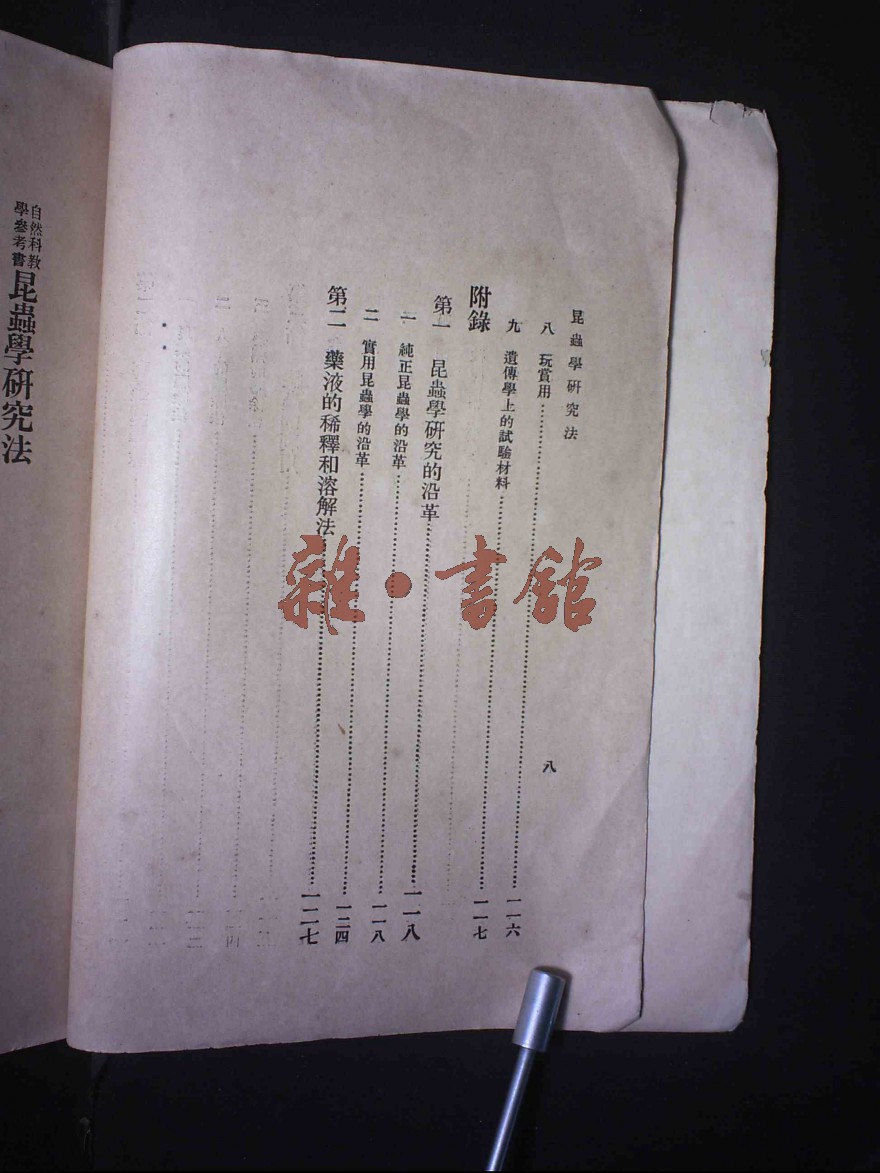 昆蟲學研究法
八
八　玩賞用……一一六
九　遺傳學上的試驗材料……一一七
附錄
第一　昆蟲學研究的沿革……一一八
一　純正昆蟲學的沿革……一一八
二　實用昆蟲學的沿革……一二四
第二　藥液的稀釋和溶解法……一二七
自然科教
學參考書
昆蟲學研究法
雜・書館